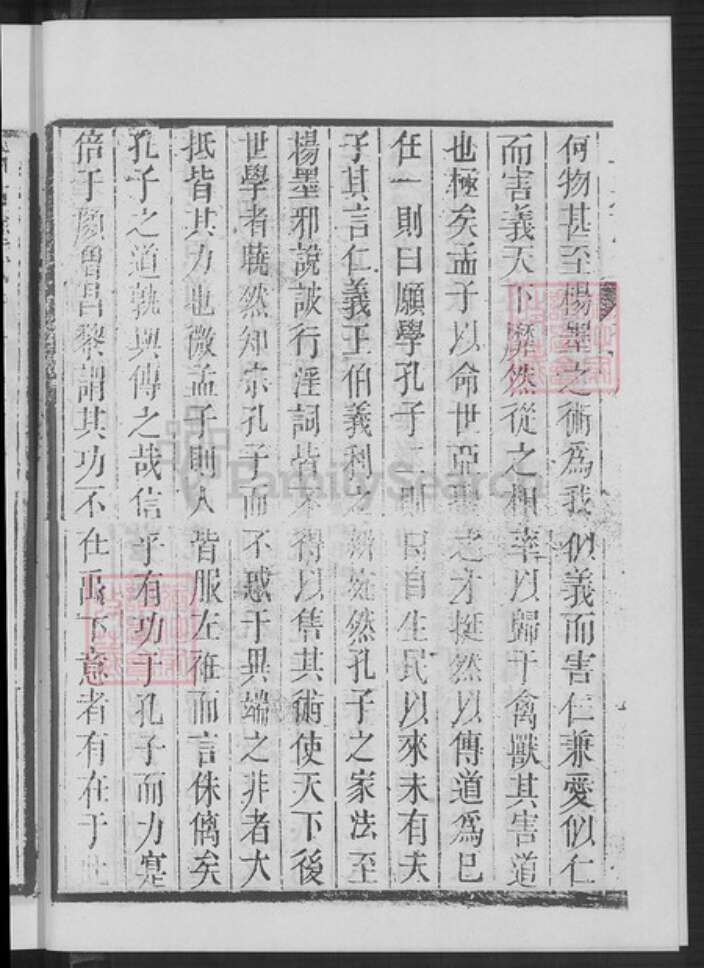 何物甚至楊墨之術為我似義而害仁兼愛似仁
而害義天下靡然從之相率以歸于禽獸其害道
也極矣孟子以命世亞聖之才挺然以傳道為己
任一則曰願學孔子二則曰自生民以來未有夫
子其言仁義王伯義利之辨宛然孔子之家法至
楊墨邪說詖行淫詞皆不得以售其術使天下後
世學者曉然知宗孔子而不惑于異端之非者大
抵皆其力也微孟子則人皆服左衽而言侏僪矣
孔子之道孰與傳之哉信乎有功于孔子而力寔
倍于顏曾昌黎謂其功不在禹下意者有在于此
FamilySearch